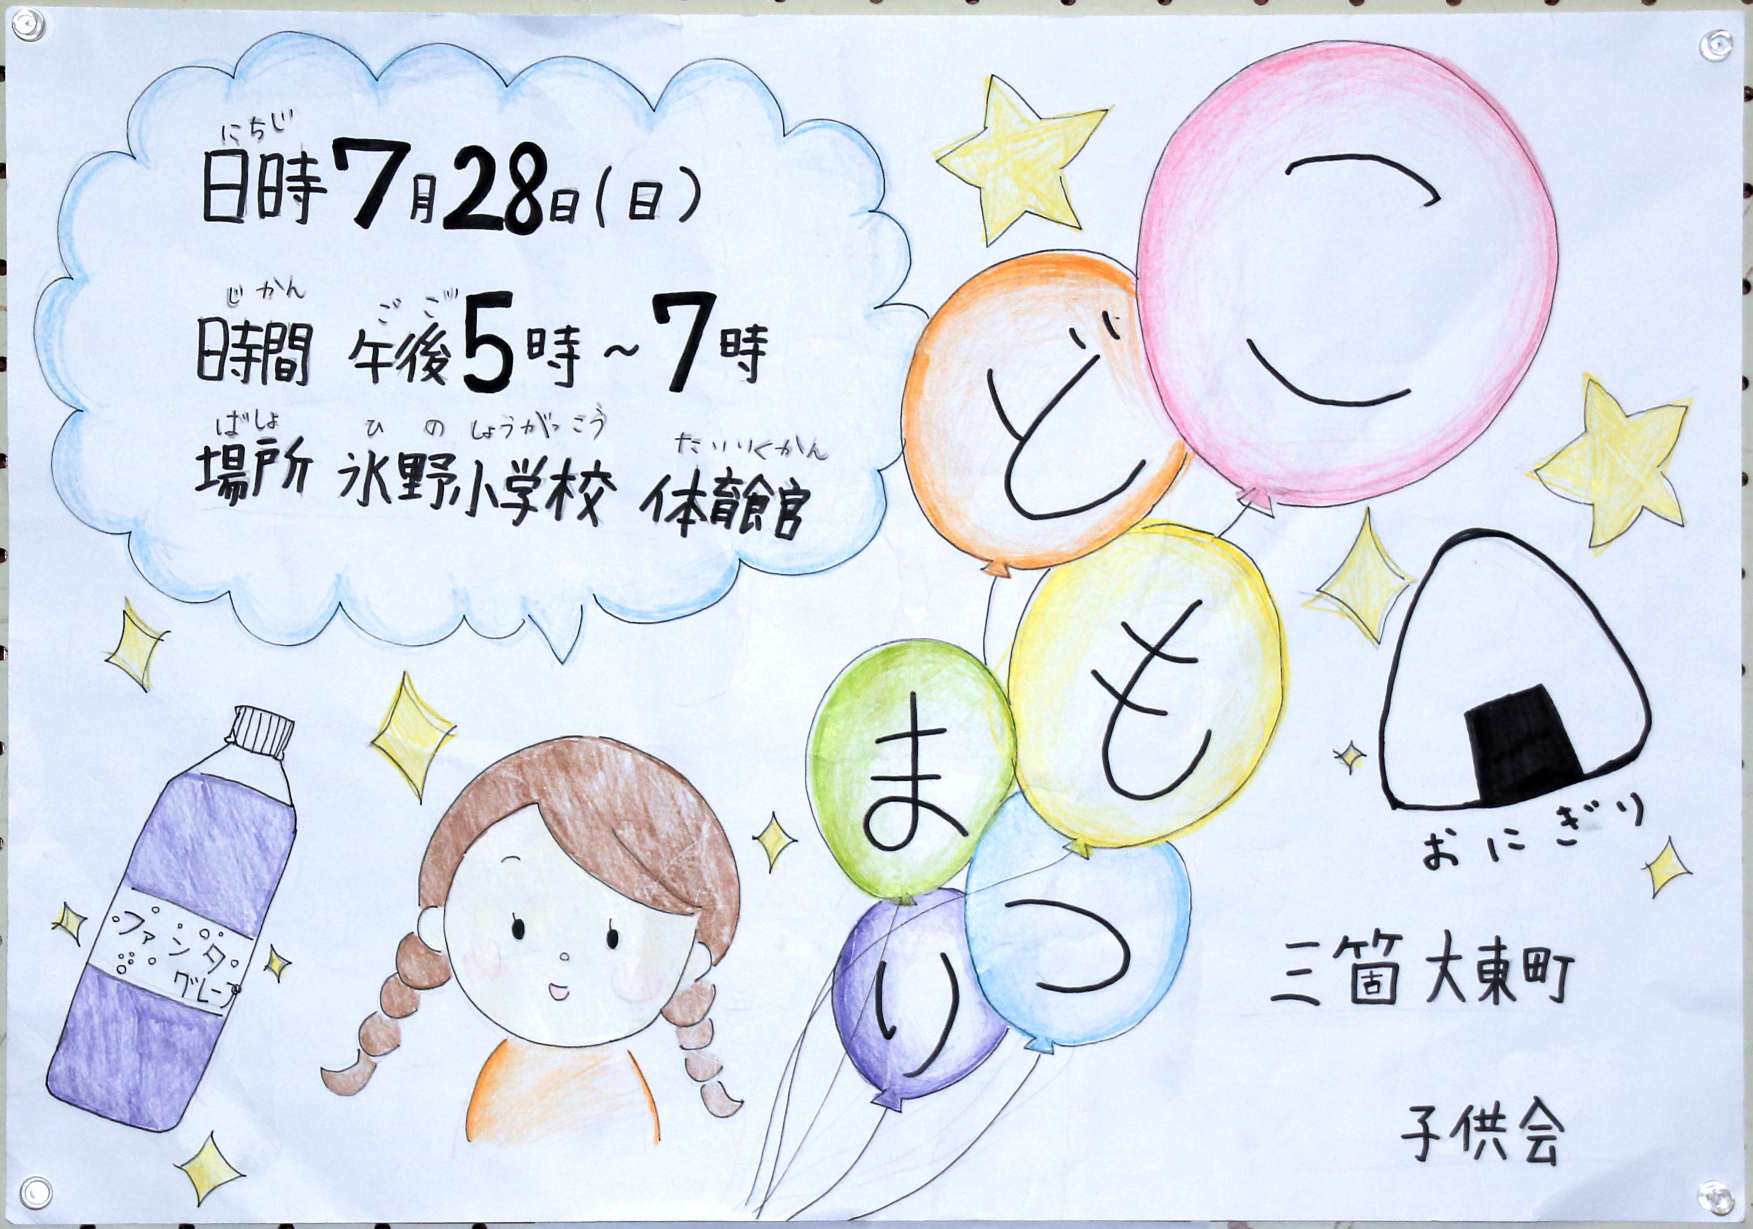 にちじ
日時7月28日(日)
じかん ごご
時間 午後5時~7時
ばしょ ひの しょうがっこう たいいくかん
場所 氷野小学校 体育館
こどもまつり
ファンタ
グレープ
おにぎり
三箇大東町
子供会